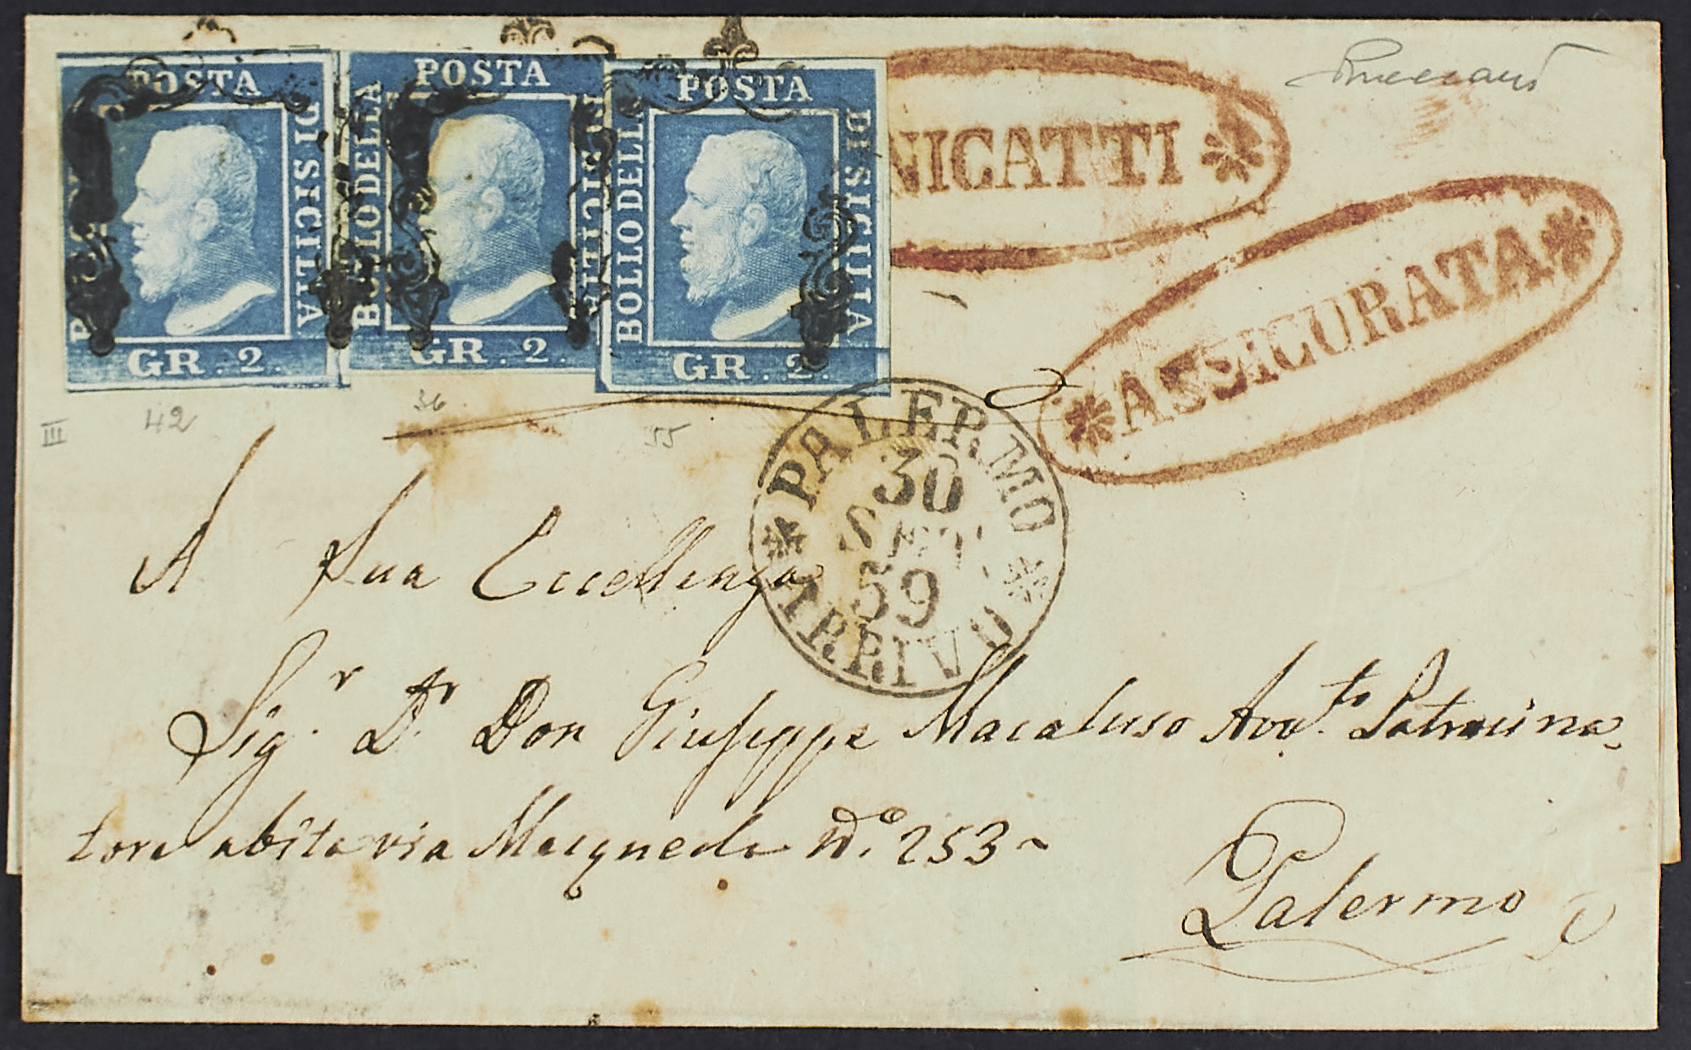 POSTA
BOLLO DELLA
DI SICILIA
GR. 2.
POSTA
BOLLO DELLA
DI SICILIA
GR. 2.
POSTA
BOLLO DELLA
DI SICILIA
GR. 2.
NICATTI
ASSICURATA
III 42 36 55
PALERMO
30
SET
59
ARRIVO
A Sua Eccellenza
Sig.r D.r Don Giuseppe Macaluso Avv.to Patrocina-
tore abita via Macqueda N.o 253
Palermo